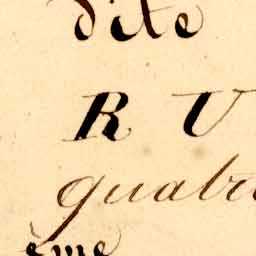 dite
R U
quatr
ème